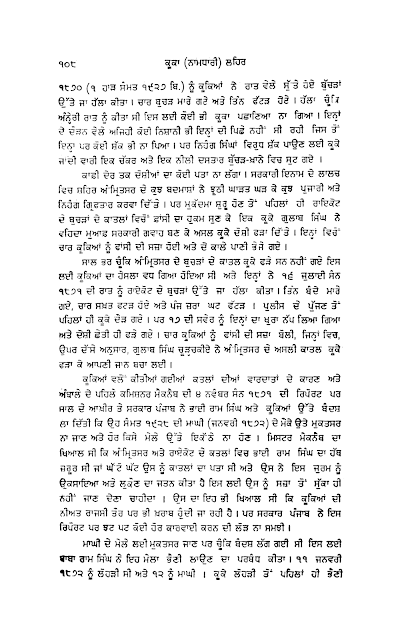 ੧੦੮ ਕੂਕਾ (ਨਾਮਧਾਰੀ) ਲਹਿਰ
੧੮੭੦ (੧ ਹਾੜ ਸੰਮਤ ੧੯੨੭ ਬਿ.) ਨੂੰ ਕੂਕਿਆਂ ਨੇ ਰਾਤ ਵੇਲੇ ਸੁੱਤੇ ਹੋਏ ਬੁੱਚੜਾਂ
ਉੱਤੇ ਜਾ ਹੱਲਾ ਕੀਤਾ। ਚਾਰ ਬੁਚੜ ਮਾਰੇ ਗਏ ਅਤੇ ਤਿੰਨ ਫੱਟੜ ਹੋਏ। ਹੱਲਾ ਚੂੰਕਿ
ਅੰਨ੍ਹੇਰੀ ਰਾਤ ਨੂੰ ਕੀਤਾ ਸੀ ਇਸ ਲਈ ਕੋਈ ਭੀ ਕੂਕਾ ਪਛਾਣਿਆ ਨਾ ਗਿਆ। ਇਨ੍ਹਾਂ
ਦੇ ਦੌੜਨ ਵੇਲੇ ਅਜਿਹੀ ਕੋਈ ਨਿਸ਼ਾਨੀ ਭੀ ਇਨ੍ਹਾਂ ਦੀ ਪਿਛੇ ਨਹੀਂ ਸੀ ਰਹੀ ਜਿਸ ਤੋਂ
ਇਨ੍ਹਾ ਪਰ ਕੋਈ ਸ਼ੱਕ ਭੀ ਨਾ ਪਿਆ। ਪਰ ਨਿਹੰਗ ਸਿੰਘਾਂ ਵਿਰੁਧ ਸ਼ੱਕ ਪਾਉਣ ਲਈ ਕੂਕੇ
ਜਾਂਦੀ ਵਾਰੀ ਇਕ ਚੱਕਰ ਅਤੇ ਇਕ ਨੀਲੀ ਦਸਤਾਰ ਬੁੱਚੜ-ਖ਼ਾਨੇ ਵਿਚ ਸੁਟ ਗਏ ।
ਕਾਫੀ ਦੇਰ ਤਕ ਦੋਸ਼ੀਆਂ ਦਾ ਕੋਈ ਪਤਾ ਨਾ ਲੱਗਾ। ਸਰਕਾਰੀ ਇਨਾਮ ਦੇ ਲਾਲਚ
ਵਿਚ ਸ਼ਹਿਰ ਅੰਮ੍ਰਿਤਸਰ ਦੇ ਕੁਝ ਬਦਮਾਸ਼ਾਂ ਨੇ ਝੂਠੀ ਘਾੜਤ ਘੜ ਕੇ ਕੁਝ ਪੁਜਾਰੀ ਅਤੇ
ਨਿਹੰਗ ਗ੍ਰਿਫਤਾਰ ਕਰਵਾ ਦਿੱਤੇ। ਪਰ ਮੁਕੱਦਮਾ ਸ਼ੁਰੂ ਹੋਣ ਤੋਂ ਪਹਿਲਾਂ ਹੀ ਰਾਇਕੋਟ
ਦੇ ਬੁਚੜਾਂ ਦੇ ਕਾਤਲਾਂ ਵਿਚੋਂ ਫਾਂਸੀ ਦਾ ਹੁਕਮ ਸੁਣ ਕੇ ਇਕ ਕੂਕੇ ਗੁਲਾਬ ਸਿੰਘ ਨੇ
ਵਹਿਦਾ ਮੁਆਫ਼ ਸਰਕਾਰੀ ਗਵਾਹ ਬਣ ਕੇ ਅਸਲ ਕੂਕੇ ਦੋਸ਼ੀ ਫੜਾ ਦਿੱਤੇ। ਇਨ੍ਹਾਂ ਵਿਚੋਂ
ਚਾਰ ਕੂਕਿਆਂ ਨੂੰ ਫਾਂਸੀ ਦੀ ਸਜ਼ਾ ਹੋਈ ਅਤੇ ਦੋ ਕਾਲੇ ਪਾਣੀ ਭੇਜੇ ਗਏ ।
ਸਾਲ ਭਰ ਚੂੰਕਿ ਅੰਮ੍ਰਿਤਸਰ ਦੇ ਬੁਚੜਾਂ ਦੇ ਕਾਤਲ ਕੂਕੇ ਫੜੇ ਸਨ ਨਹੀਂ ਗਏ ਇਸ
ਲਈ ਕੂਕਿਆਂ ਦਾ ਹੌਸਲਾ ਵਧ ਗਿਆ ਹੋਇਆ ਸੀ ਅਤੇ ਇਨ੍ਹਾਂ ਨੇ ੧੬ ਜੁਲਾਈ ਸੰਨ
੧੮੭੧ ਦੀ ਰਾਤ ਨੂੰ ਰਾਏਕੋਟ ਦੇ ਬੁਚੜਾਂ ਉੱਤੇ ਜਾ ਹੱਲਾ ਕੀਤਾ। ਤਿੰਨ ਬੰਦੇ ਮਾਰੇ
ਗਏ, ਚਾਰ ਸਖ਼ਤ ਫਟੜ ਹੋਏ ਅਤੇ ਪੰਜ ਜ਼ਰਾ ਘਟ ਫੱਟੜ। ਪੁਲੀਸ ਦੇ ਪੁੱਜਣ ਤੋਂ
ਪਹਿਲਾਂ ਹੀ ਕੂਕੇ ਦੌੜ ਗਏ। ਪਰ ੧੭ ਦੀ ਸਵੇਰ ਨੂੰ ਇਨ੍ਹਾਂ ਦਾ ਖੁਰਾ ਨੱਪ ਲਿਆ ਗਿਆ
ਅਤੇ ਦੋਸ਼ੀ ਛੇਤੀ ਹੀ ਫੜੇ ਗਏ। ਚਾਰ ਕੂਕਿਆਂ ਨੂੰ ਫਾਂਸੀ ਦੀ ਸਜ਼ਾ ਬੋਲੀ, ਜਿਨ੍ਹਾਂ ਵਿਚ,
ਉਪਰ ਦੱਸੇ ਅਨੁਸਾਰ, ਗੁਲਾਬ ਸਿੰਘ ਚੁੜਚਕੀਏ ਨੇ ਅੰਮ੍ਰਿਤਸਰ ਦੇ ਅਸਲੀ ਕਾਤਲ ਕੂਕੇ
ਫੜਾ ਕੇ ਆਪਣੀ ਜਾਨ ਬਚਾ ਲਈ।
ਕੂਕਿਆਂ ਵਲੋਂ ਕੀਤੀਆਂ ਗਈਆਂ ਕਤਲਾਂ ਦੀਆਂ ਵਾਰਦਾਤਾਂ ਦੇ ਕਾਰਣ ਅਤੇ
ਅੰਬਾਲੇ ਦੇ ਪਹਿਲੇ ਕਮਿਸ਼ਨਰ ਮੈਕਨੈਬ ਦੀ ੪ ਨਵੰਬਰ ਸੰਨ ੧੮੭੧ ਦੀ ਰਿਪੋਰਟ ਪਰ
ਸਾਲ ਦੇ ਆਖ਼ੀਰ ਤੇ ਸਰਕਾਰ ਪੰਜਾਬ ਨੇ ਭਾਈ ਰਾਮ ਸਿੰਘ ਅਤੇ ਕੂਕਿਆਂ ਉੱਤੇ ਬੰਦਸ਼
ਲਾ ਦਿੱਤੀ ਕਿ ਉਹ ਸੰਮਤ ੧੯੨੮ ਦੀ ਮਾਘੀ (ਜਨਵਰੀ ੧੮੭੨) ਦੇ ਮੌਕੇ ਉਤੇ ਮੁਕਤਸਰ
ਨਾ ਜਾਣ ਅਤੇ ਹੋਰ ਕਿਸੇ ਮੇਲੇ ਉੱਤੇ ਇਕੱਠੇ ਨਾ ਹੋਣ। ਮਿਸਟਰ ਮੈਕਨੈਬ ਦਾ
ਖ਼ਿਆਲ ਸੀ ਕਿ ਅੰਮ੍ਰਿਤਸਰ ਅਤੇ ਰਾਏਕੋਟ ਦੇ ਕਤਲਾਂ ਵਿਚ ਭਾਈ ਰਾਮ ਸਿੰਘ ਦਾ ਹੱਥ
ਜ਼ਰੂਰ ਸੀ ਜਾਂ ਘੱਟੋ ਘੱਟ ਉਸ ਨੂੰ ਕਾਤਲਾਂ ਦਾ ਪਤਾ ਸੀ ਅਤੇ ਉਸ ਨੇ ਇਸ ਜੁਰਮ ਨੂੰ
ਉਕਸਾਇਆ ਅਤੇ ਲੁਕੌਣ ਦਾ ਜਤਨ ਕੀਤਾ ਹੈ ਇਸ ਲਈ ਉਸ ਨੂੰ ਸਜ਼ਾ ਤੋਂ ਸੁੱਕਾ ਹੀ
ਨਹੀਂ ਜਾਣ ਦੇਣਾ ਚਾਹੀਦਾ। ਉਸ ਦਾ ਇਹ ਭੀ ਖ਼ਿਆਲ ਸੀ ਕਿ ਕੂਕਿਆਂ ਦੀ
ਨੀਅਤ ਰਾਜਸੀ ਤੌਰ ਪਰ ਭੀ ਖ਼ਰਾਬ ਹੁੰਦੀ ਜਾ ਰਹੀ ਹੈ। ਪਰ ਸਰਕਾਰ ਪੰਜਾਬ ਨੇ ਇਸ
ਰਿਪੋਰਟ ਪਰ ਝਟ ਪਟ ਕੋਈ ਹੋਰ ਕਾਰਵਾਈ ਕਰਨ ਦੀ ਲੋੜ ਨਾ ਸਮਝੀ।
ਮਾਘੀ ਦੇ ਮੇਲੇ ਲਈ ਮੁਕਤਸਰ ਜਾਣ ਪਰ ਚੂੰਕਿ ਬੰਦਸ਼ ਲੱਗ ਗਈ ਸੀ ਇਸ ਲਈ
ਬਾਬਾ ਰਾਮ ਸਿੰਘ ਨੇ ਇਹ ਮੇਲਾ ਭੈਣੀ ਲਾਉਣ ਦਾ ਪਰਬੰਧ ਕੀਤਾ। ੧੧ ਜਨਵਰੀ
੧੮੭੨ ਨੂੰ ਲੋਹੜੀ ਸੀ ਅਤੇ ੧੨ ਨੂੰ ਮਾਘੀ । ਕੂਕੇ ਲੋਹੜੀ ਤੋਂ ਪਹਿਲਾਂ ਹੀ ਭੈਣੀ